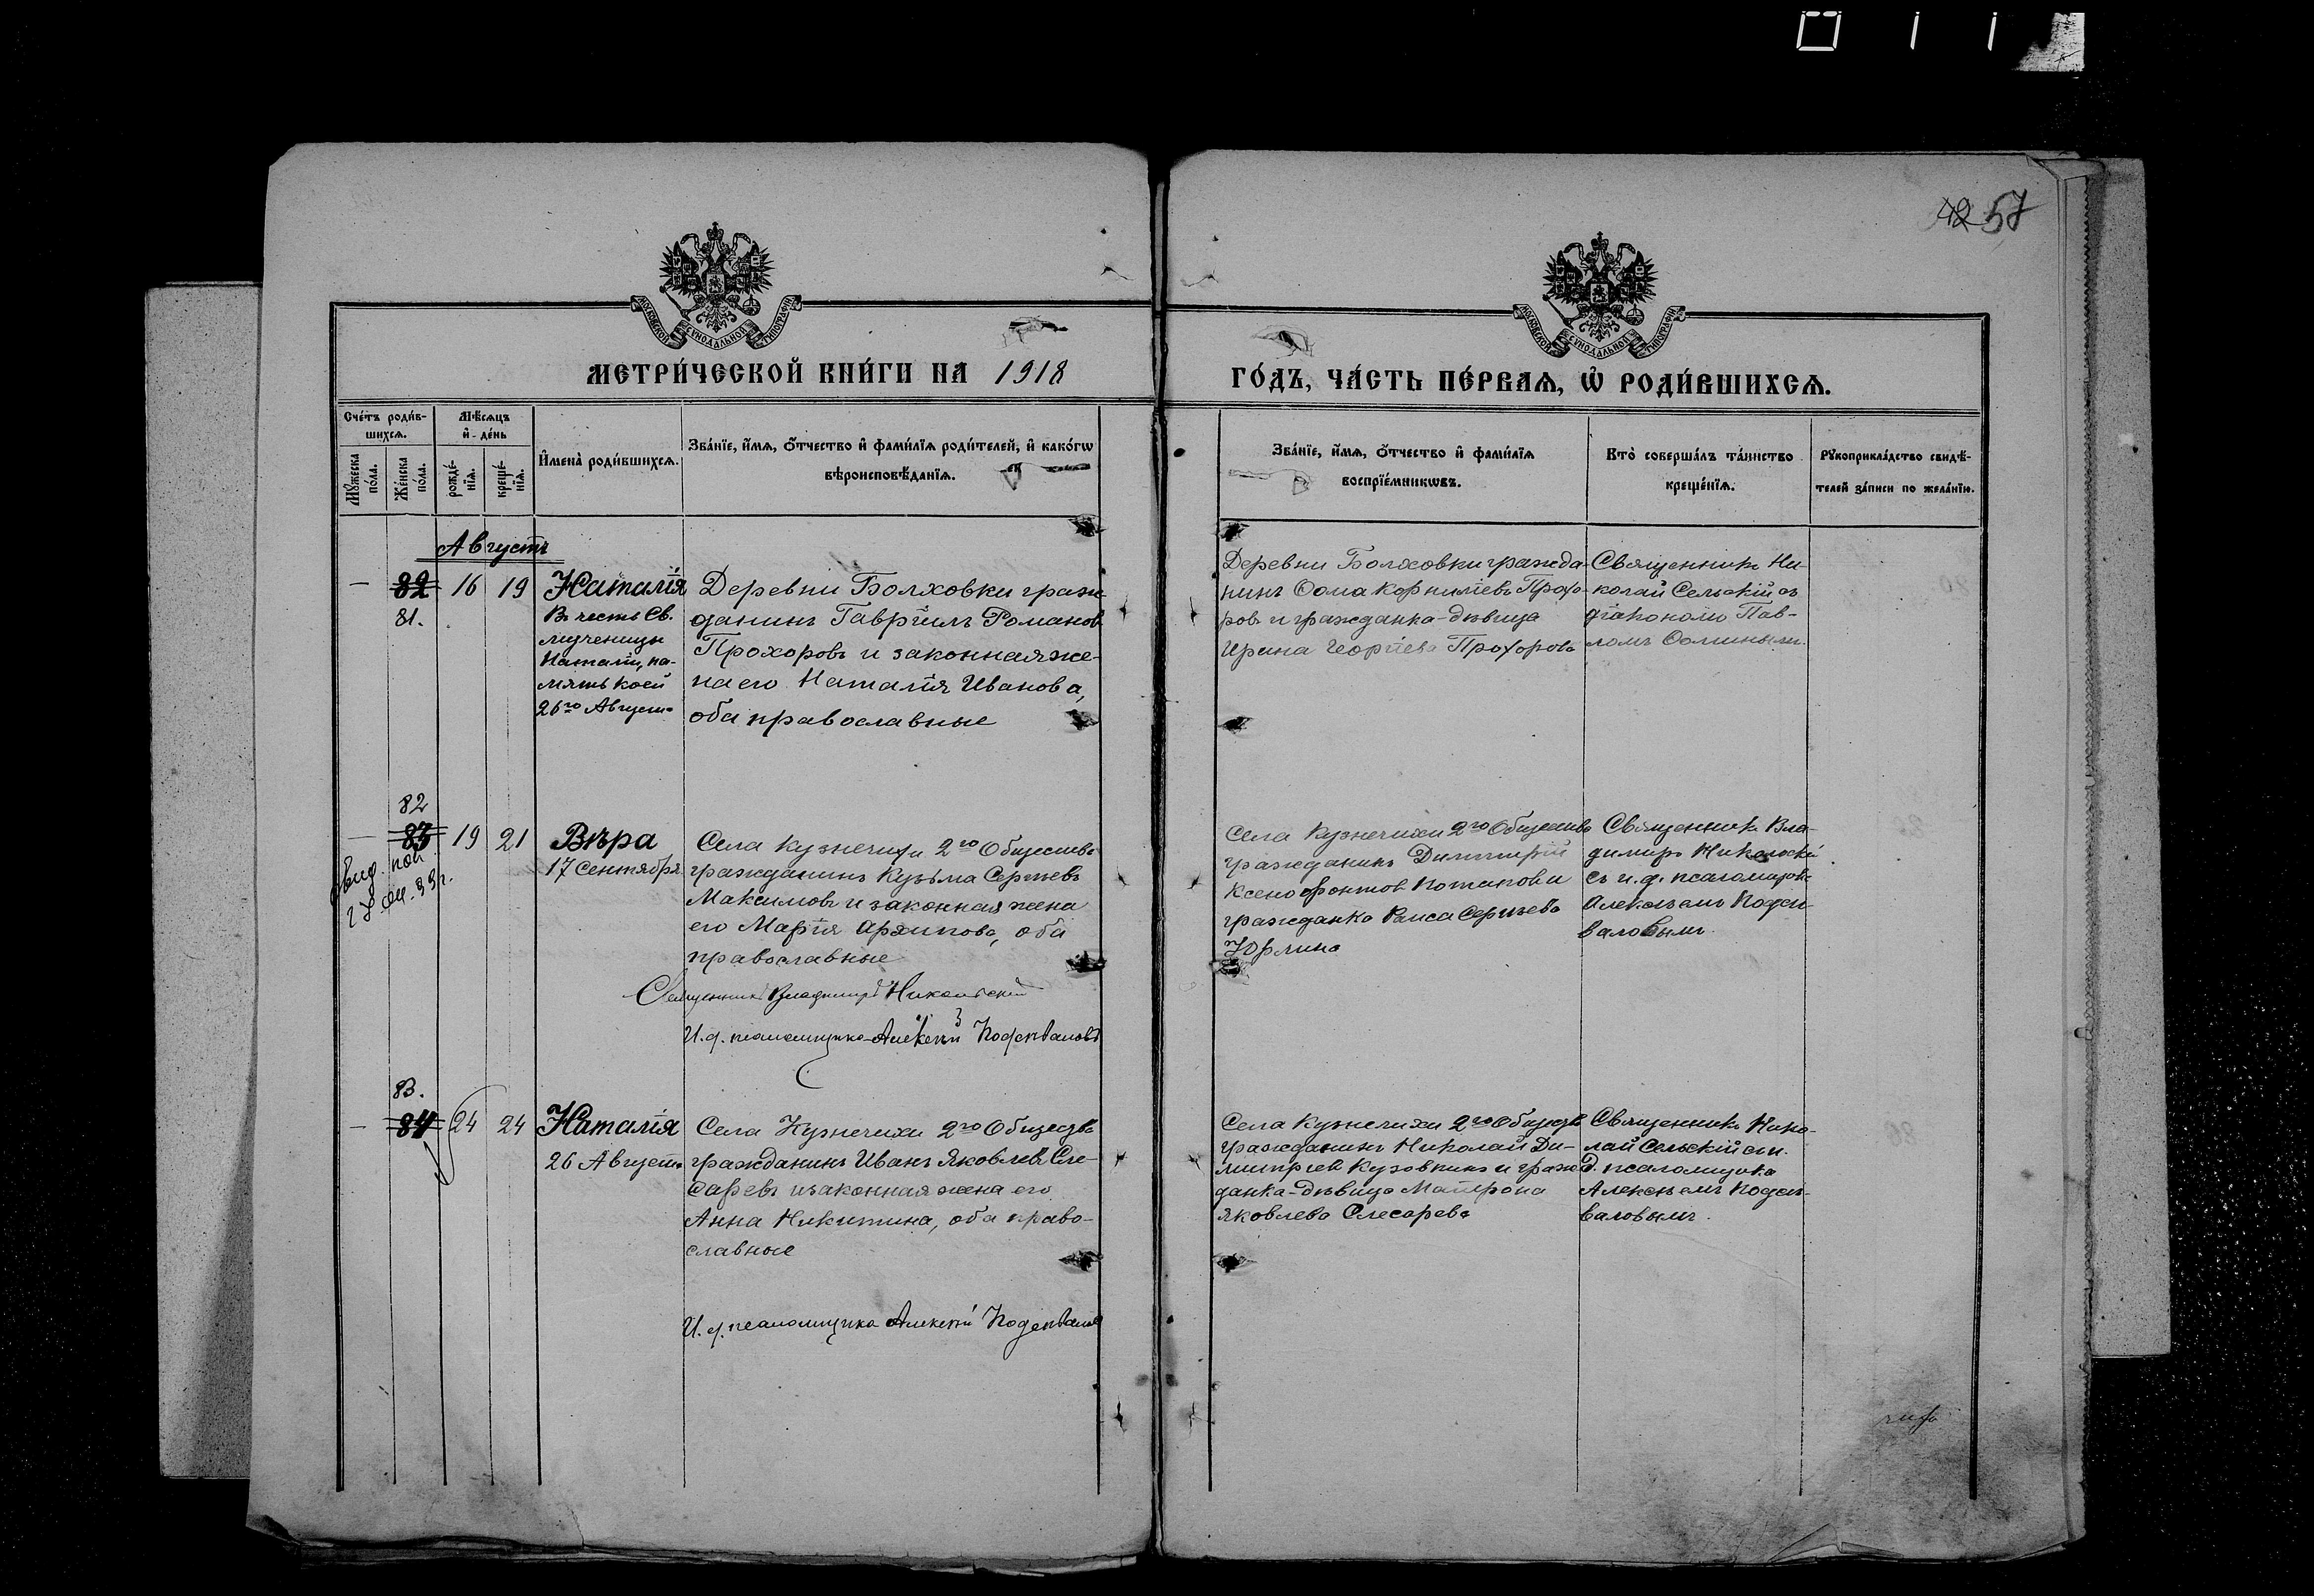 42 57
МОСКОВСКОЙ СУНОДАЛЬНОЙ ТИПОГРАФІИ
МОСКОВСКОЙ СУНОДАЛЬНОЙ ТИПОГРАФІИ
МЕТРИ́ЧЕСКОЙ КНИ́ГИ НА 1918
ГО́ДЪ, ЧА́СТЬ ПЕ́РВАѦ, Ѡ҆ РОДИ́ВШИХСѦ.
Сче́тъ роди́в-
шихсѧ.
Мꙋ́жеска
по́ла.
Же́нска
по́ла.
Мѣ́сѧцъ
и҆ де́нь
рожде́-
нїѧ.
креще́-
нїѧ.
И҆мена̀ роди́вшихсѧ.
Зва́нїе, и҆́мѧ, ѻ҆́тчество и҆ фами́лїѧ роди́телей, и҆ како́гѡ
вѣроисповѣ́данїѧ.
Зва́нїе, и҆́мѧ, ѻ҆́тчество и҆ фами́лїѧ
воспрїе́мникѡвъ.
Кто̀ соверша́лъ та́инство
креще́нїѧ.
Рꙋкоприкла́дство свидѣ́-
телей за́писи по жела́нїю.
Августъ
— 82 16 19
81.
Наталія
Въ честь Св.
мученицы
Наталіи, па-
мять коей
26го Августа
Деревни Болховки граж-
данинъ Гавріилъ Романов
Прохоровъ и законная же-
на его Наталія Иванова,
оба православные
Деревни Болховки гражда-
нинъ Ѳома Корниліевъ Прохо-
ровъ и гражданка-дѣвица
Ирина Георгіева Прохорова
Священникъ Ни-
колай Сельскій съ
діакономъ Пав-
ломъ Ѳоминымъ.
82
— 83 19 21
Вѣра
17 Сентября
Села Кузнечихи 2го Общества
гражданинъ Кузьма Сергѣевъ
Максимовъ и законная жена
его Марія Архипова, оба
православные
Священникъ Владимиръ Никольскій
И.д. псаломщика Алексѣй Подсѣваловъ
Села Кузнечихи 2го Общества
гражданинъ Димитрій
Ксенофонтов Потаповъ и
гражданка Раиса Сергѣева
Юрлина
Священникъ Вла-
димиръ Никольскій
съ и.д. псаломщика
Алексѣемъ Подсѣ-
валовымъ.
83.
— 84 24 24
Наталія
26 Августа
Села Кузнечихи 2го Обществ
гражданинъ Иванъ Яковлевъ Сле-
саревъ и законная жена его
Анна Никитина, оба право-
славные
И.д. псаломщика Алексѣй Подсѣваловъ
Села Кузнечихи 2го Обществ
гражданинъ Николай Ди-
митріев Кузовкинъ и граж-
данка-дѣвица Матрона
Яковлева Слесарева
Священникъ Нико-
лай Сельскій съ и.
д. псаломщика
Алексѣемъ Подсѣ-
валовымъ.